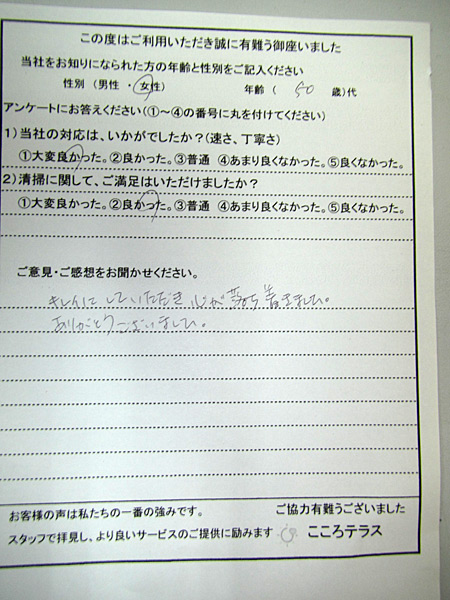 この度はご利用いただき誠に有難う御座いました
当社をお知りになられた方の年齢と性別をご記入ください
性別（男性・女性） 年齢（ 50 歳）代
アンケートにお答えください（①～④の番号に丸を付けてください）
1）当社の対応は、いかがでしたか？（速さ、丁寧さ）
①大変良かった。②良かった。③普通 ④あまり良くなかった。⑤良くなかった。
2）清掃に関して、ご満足はいただけましたか？
①大変良かった。②良かった。③普通 ④あまり良くなかった。⑤良くなかった。
ご意見・ご感想をお聞かせください。
キレイにしていただき心が落ち着きました。
ありがとうございました。
お客様の声は私たちの一番の強みです。
ご協力有難うございました
スタッフで拝見し、より良いサービスのご提供に励みます
こころテラス